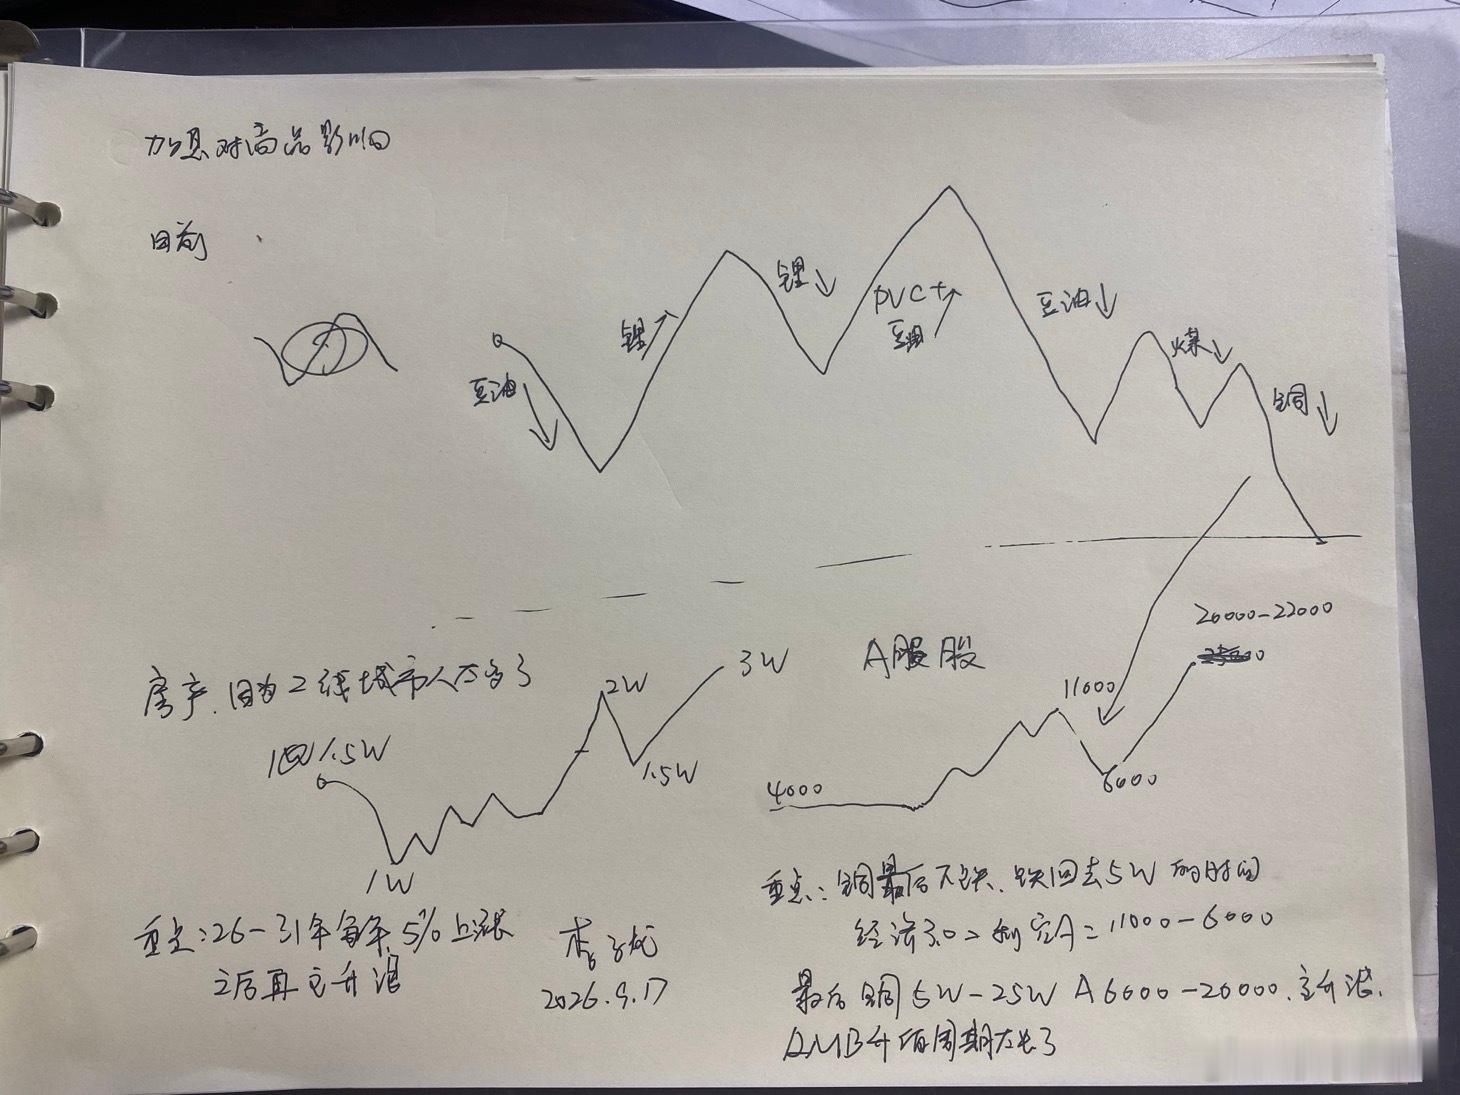 加息对商品影响
目前
豆油
锂
锂
PVC+
豆油
豆油
煤
铜
房产.因为2线城市人太多了
1.5W
1W
2W
1.5W
3W
A股
4000
11000
6000
20000-22000
重点:26-31年每年5%上涨
之后再主升浪
2026.9.17
重点:铜最后下跌.跌回去5W的时间
经济 A=11000-6000
最后铜5W-25W A6000-20000.主升浪.
RMB升值周期太长了